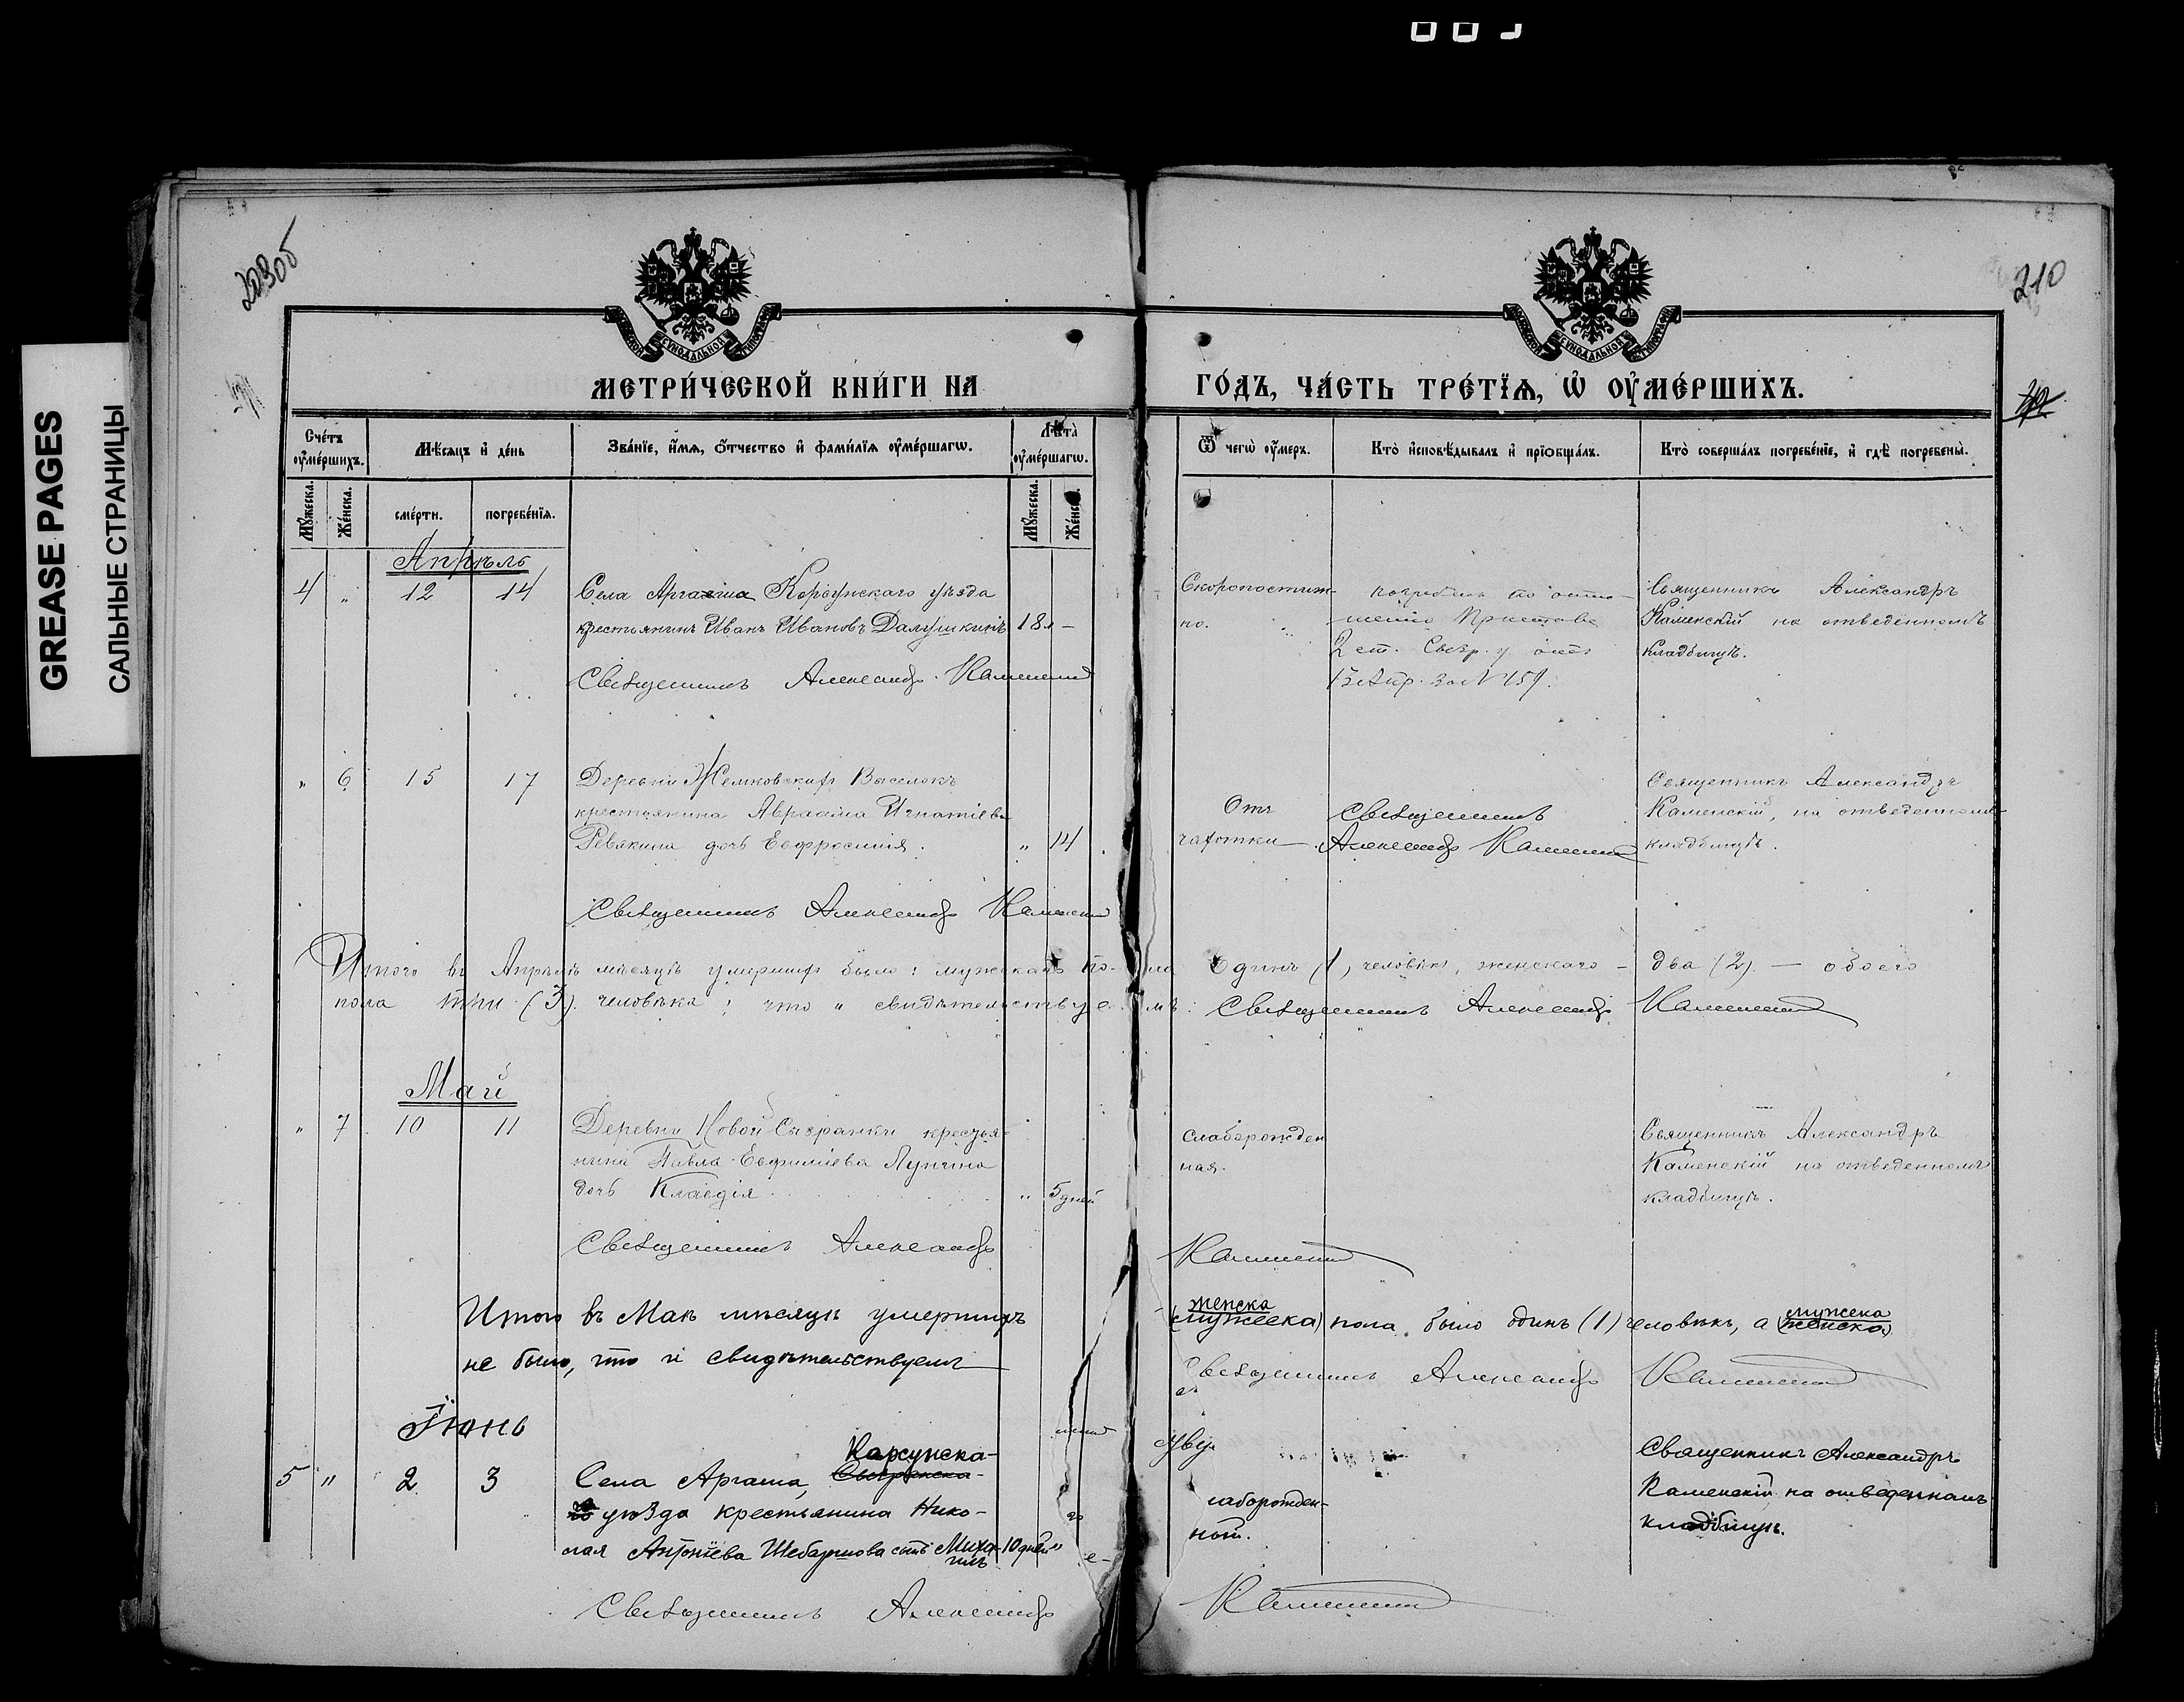 GREASE PAGES
САЛЬНЫЕ СТРАНИЦЫ
210
МЕТРИ́ЧЕСКОЙ КНИ́ГИ НА
ГО́ДЪ, ЧА́СТЬ ТРЕ́ТЇѦ, Ѡ҆ ОУ҆МЕ́РШИХЪ.
Сче́тъ оу҆ме́ршихъ.
Мѣ́сѧцъ и҆ де́нь
Зва́нїе, и҆́мѧ, ѻ҆́тчество и҆ фами́лїѧ оу҆ме́ршагѡ.
Лѣ́та оу҆ме́ршагѡ.
Ѿ чегѡ̀ оу҆́меръ.
Кто̀ и҆сповѣ́дывалъ и҆ прїѡбща́лъ.
Кто̀ соверша́лъ погребе́нїе, и҆ гдѣ̀ погребены̀.
Мꙋ́жеска.
Же́нска.
сме́рти.
погребе́нїѧ.
Мꙋ́жеска.
Же́нска.
Апрѣль
4 " 12 14 Села Аргаша Корсунскаго уѣзда
крестьянинъ Иванъ Ивановъ Далушкинъ 18 л –
Скоропостиж-
но.
погребенъ по отно-
шенію Пристава
2 ст. Сызр. у. отъ
13 Апр. за № 459.
Священникъ Александръ
Каменскій на отведенномъ
кладбищѣ.
Священникъ Александръ Каменскій
" 6 15 17 Деревни Жемковскихъ Выселокъ
крестьянина Авраама Игнатіева
Ревякина дочь Евфросинія. " 14
Отъ
чахотки
Священникъ
Александръ Каменскій
Священникъ Александръ
Каменскій, на отведенномъ
кладбищѣ.
Священникъ Александръ Каменскій
Итого въ Апрѣлѣ мѣсяцѣ умершихъ было: мужскаго по-ла Одинъ (1) человѣкъ, женскаго – два (2) – обоего
пола три (3) человѣка; что и свидѣтельствуемъ: Священникъ Александръ Каменскій
Май
" 7 10 11 Деревни Новой Сызранки крестья-
нина Павла Евфиміева Лунина
дочь Клавдія " 5 дней
слаборожден
ная.
Священникъ Александръ
Каменскій на отведенномъ
кладбищѣ.
Священникъ Александръ Каменскій
Итого въ Маѣ мѣсяцѣ умершихъ
женска
(мужеска) пола было одинъ (1) человѣкъ, а
мужеска
(женска)
не было, что и свидѣтельствуемъ
Священникъ Александръ Каменскій
Іюнь
Карсунска-
5 " 2 3 Села Аргаша, Сызранска-
го уѣзда крестьянина Нико-
лая Антоніева Шебаршова сынъ Миха-
илъ 10 дней "
слаборожден-
ной.
Священникъ Александръ
Каменскій на отведенномъ
кладбищѣ.
Священникъ Александръ Каменскій